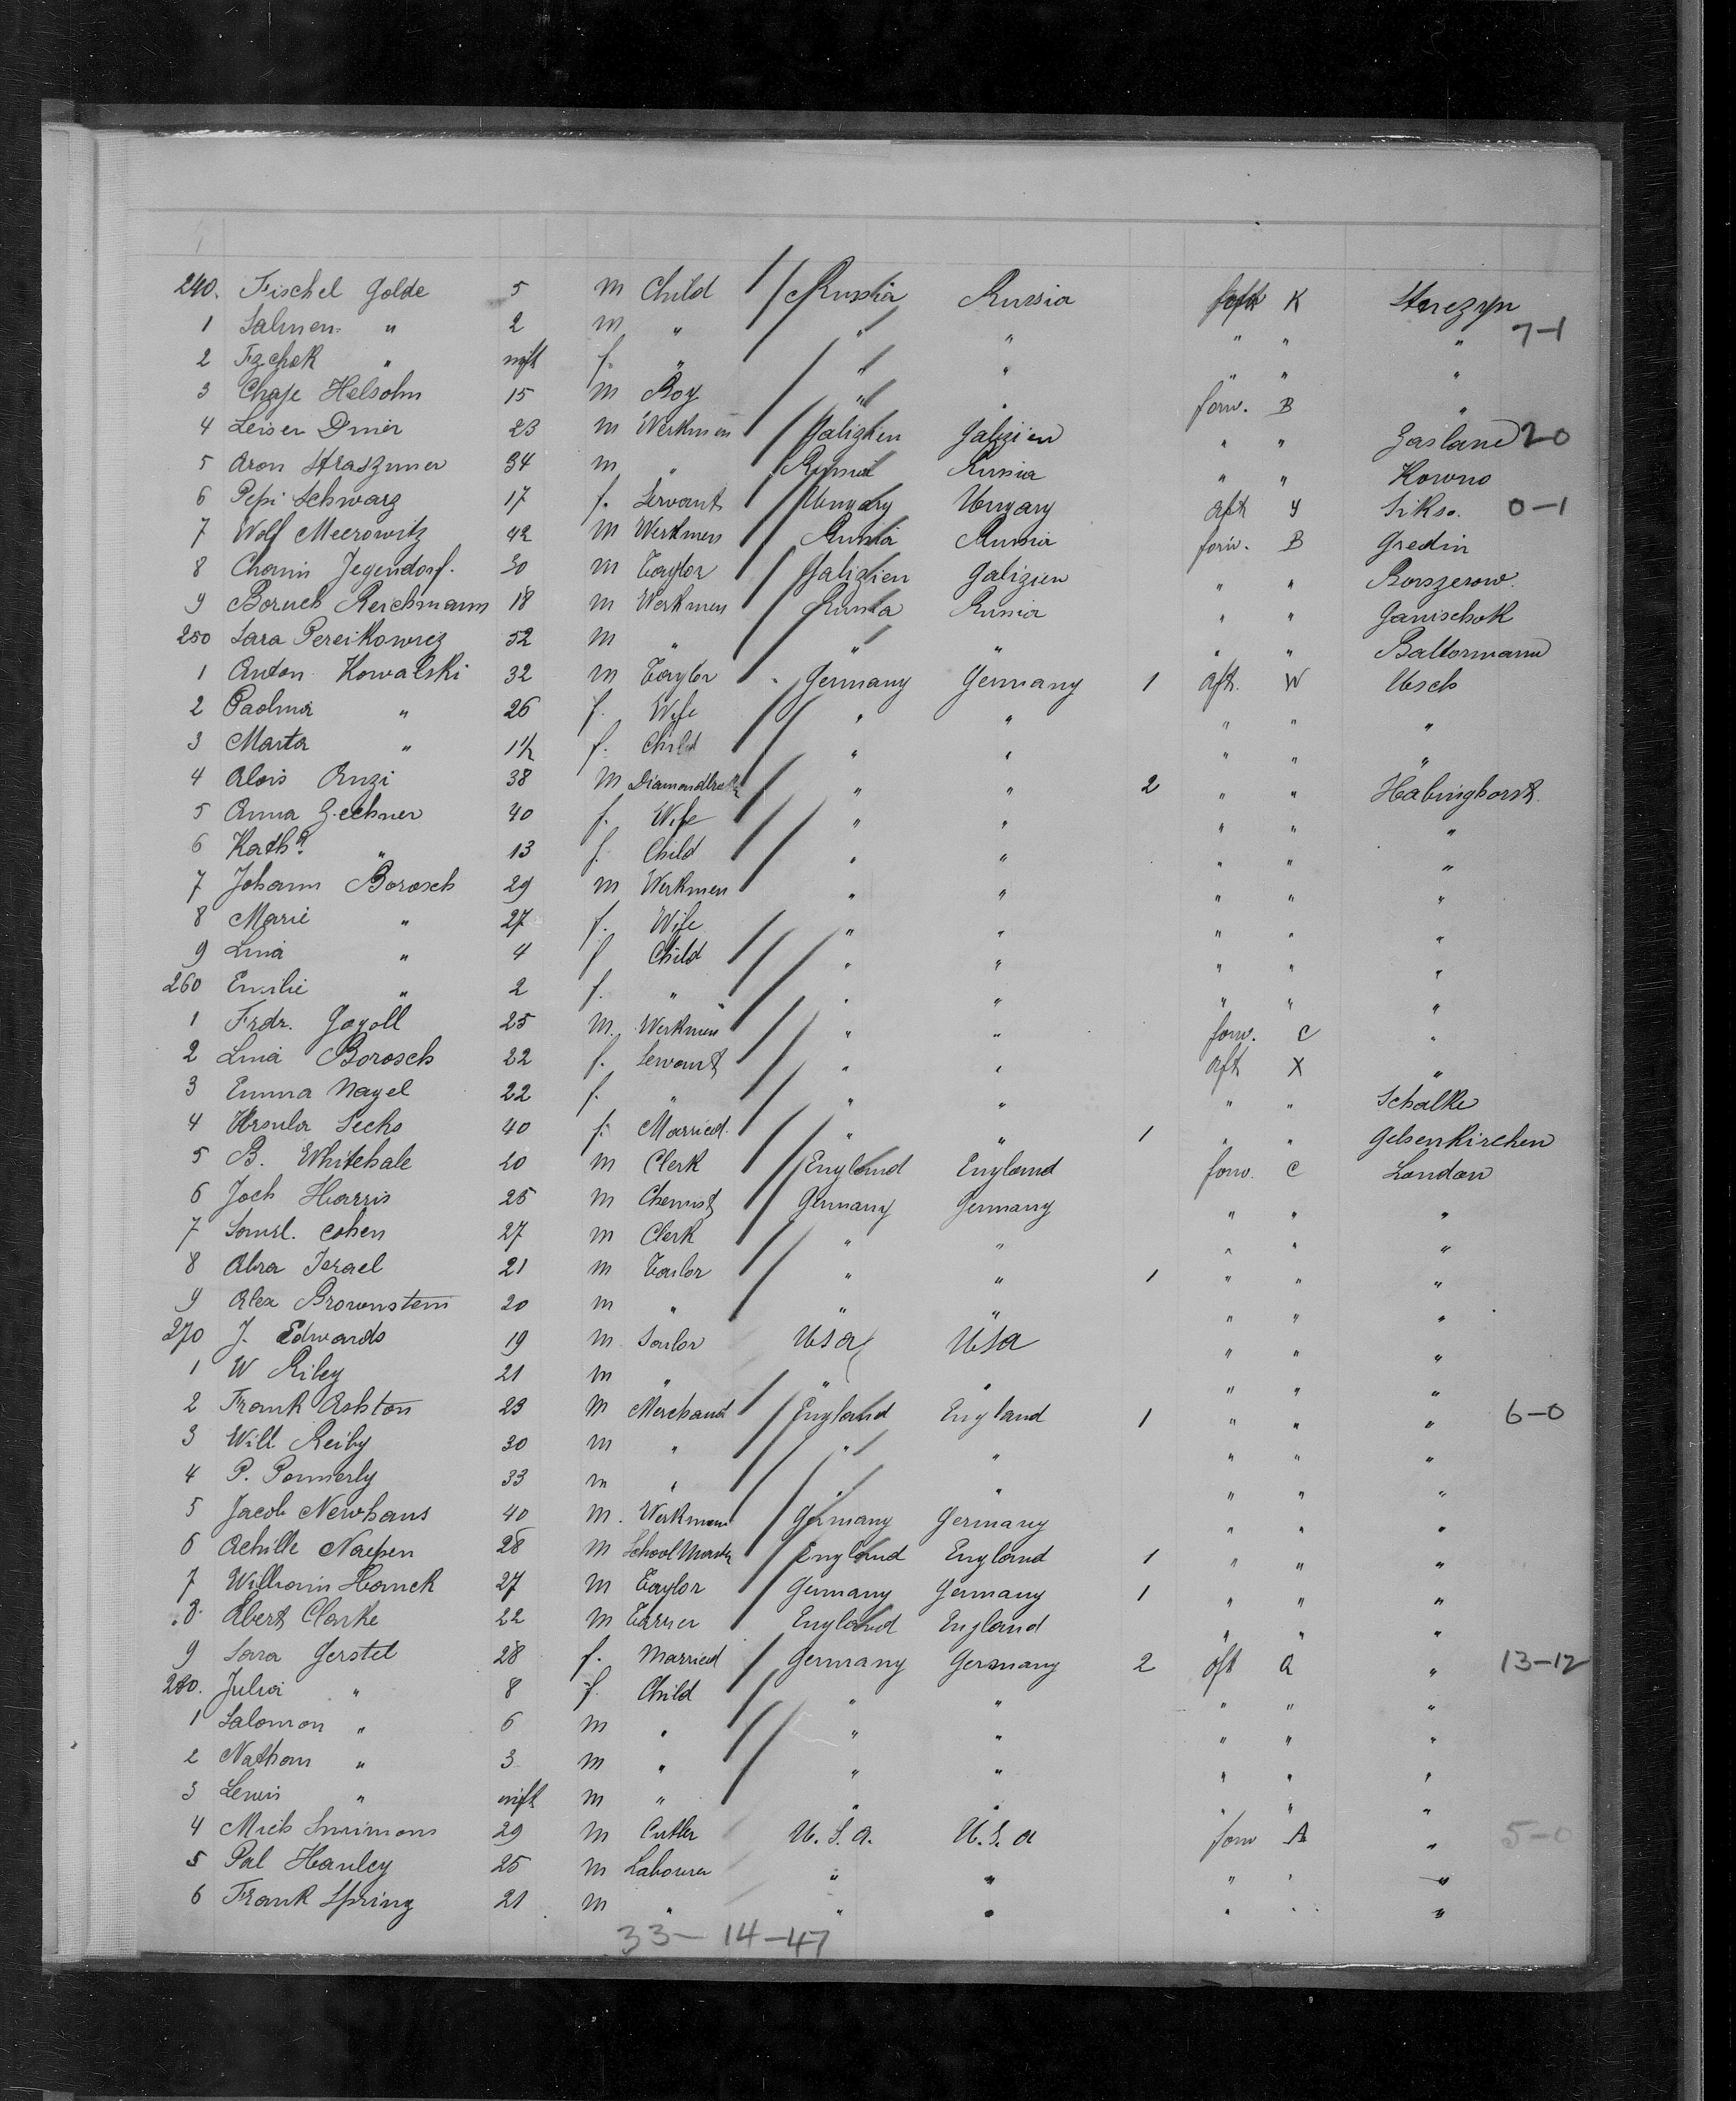 240. Fischel Golde 5 m Child Russia Russia aft K Starezyn
1 Salmen " 2 m " " " " " " 7-1
2 " inft f. " " " " " "
3 Chaje Helsohn 15 m Boy " " forw. B "
4 Leiser Dmer 23 m Werkmen Galizien Galizien " " Zasland 2-0
5 Aron Straszuner 34 m " Russia Russia " " Kowno
6 Pepi Schwarz 17 f. Servant Ungary Ungary aft y Sikso. 0-1
7 Wolf Meerowitz 42 m Werkmen Russia Russia forw. B Gredin
8 Chanin Jegendorf. 30 m Taylor Galizien Galizien " " Borszerow.
9 Boruch Reichmann 18 m Werkmen Russia Russia " " Ganischok
250 Sara Pereikowicz 52 m " " " " " Baltormann
1 Anton Kowalski 32 m Taylor " Germany Germany 1 aft. W Usch
2 Paolina " 26 f. Wife " " " " "
3 Marta " 1 1/2 f. Child " " " " "
4 Alois Anzi 38 m " " 2 " " Habinghorst.
5 Anna Zechner 40 f. Wife " " " " "
6 Katha. " 13 f. Child " " " " "
7 Johann Borosch 29 m Werkmen " " " " "
8 Marie " 27 f. Wife " " " " "
9 Lina " 4 f Child " " " " "
260 Emilie " 2 f. " " " " " "
1 Frdr. Gogoll 25 m. Werkmen " " forw. C "
2 Lina Borosch 22 f. Servant " " aft X "
3 Emma Nagel 22 f. " " " " " Schalke
4 Ursula Secks 40 f. Married. " " 1 " " Gelsenkirchen
5 B. Whitehale 20 m Clerk England England forw. C London
6 Joch Harris 25 m Chemist Germany Germany " " "
7 Saml. Cohen 27 m Clerk " " " " "
8 Abra Israel 21 m Tailor " " 1 " " "
9 Alex Brownstein 20 m " " " " " "
270 J. Edwards 19 m Sailor USA USA " " "
1 W Riley 21 m " " " " " "
2 Frank Ashton 23 m Merchand England England 1 " " " 6-0
3 Will Reiby 30 m " " " " " "
4 P. Ponnerly 33 m " " " " " "
5 Jacob Newhaus 40 m. Werkmen Germany Germany " " "
6 Achille Naepen 28 m School Master England England 1 " " "
7 William Hanck 27 m Taylor Germany Germany 1 " " "
8 Abert Clarke 22 m England England " " "
9 Sara Gerstel 28 f. Married Germany Germany 2 aft a " 13-12
280. Julia " 8 f. Child " " " " "
1 Salomon " 6 m " " " " " "
2 Nathan " 3 m " " " " " "
3 Lewis " inft m " " " " " "
4 Mich Simmons 29 m Cutler U.S.A. U.S.A forw A " 5-0
5 Pal Hanley 25 m Labourer " " " " "
6 Frank Spring 21 m " " " " " "
33-14-47